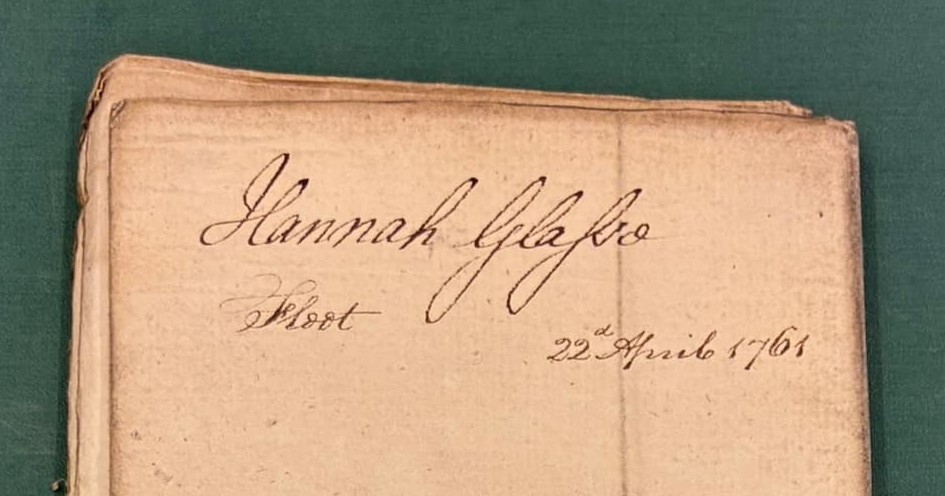 Hannah Glasse
Fleet
22d April 1761